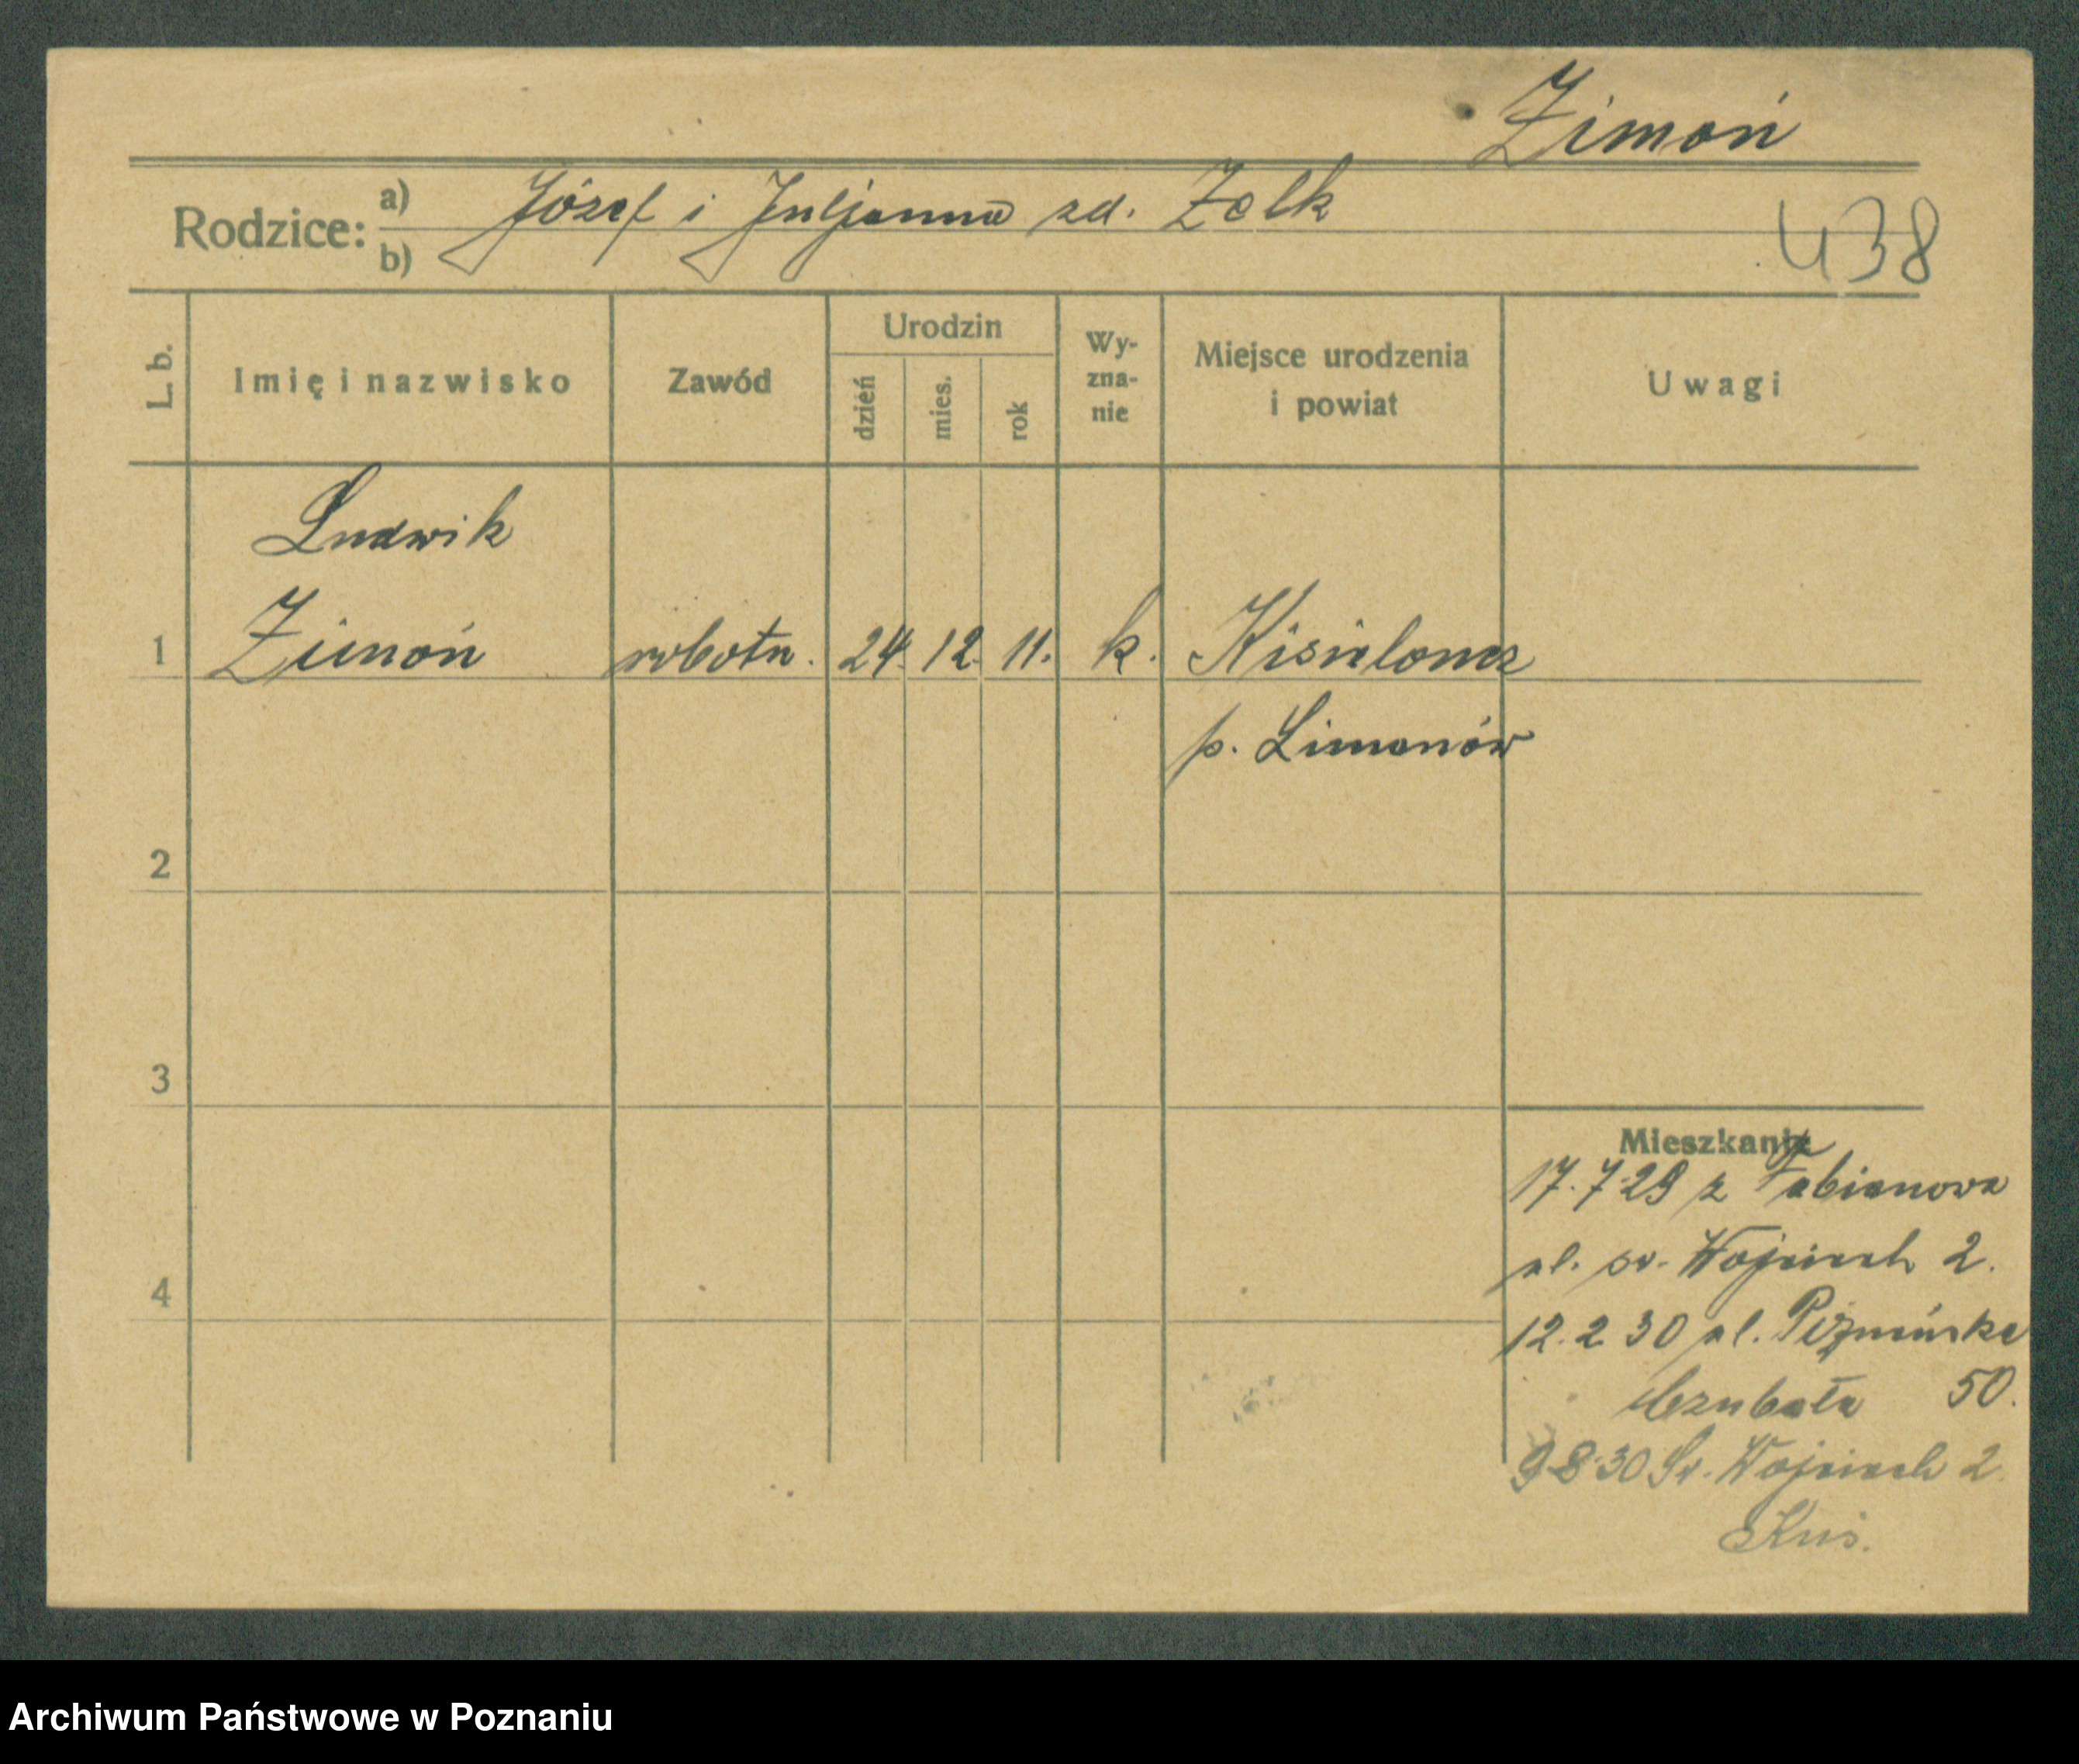 Zimoń
Rodzice: a) Józef i Juljanna zd. Zelk
b)
438
L. b. Imię i nazwisko Zawód Urodzin dzień mies. rok Wy-zna-nie Miejsce urodzenia i powiat Uwagi
Ludwik
1 Zimoń robotn. 24. 12. 11. k. Kisielomez
p. Limonów
2
3
4
Mieszkanie
17.7.29 z Fabianowa
ul. św. Wojciech 2.
12.2 30 ul.
Czubata 50.
9.8.30 Św. Wojciech 2.
Kuś.
Archiwum Państwowe w Poznaniu